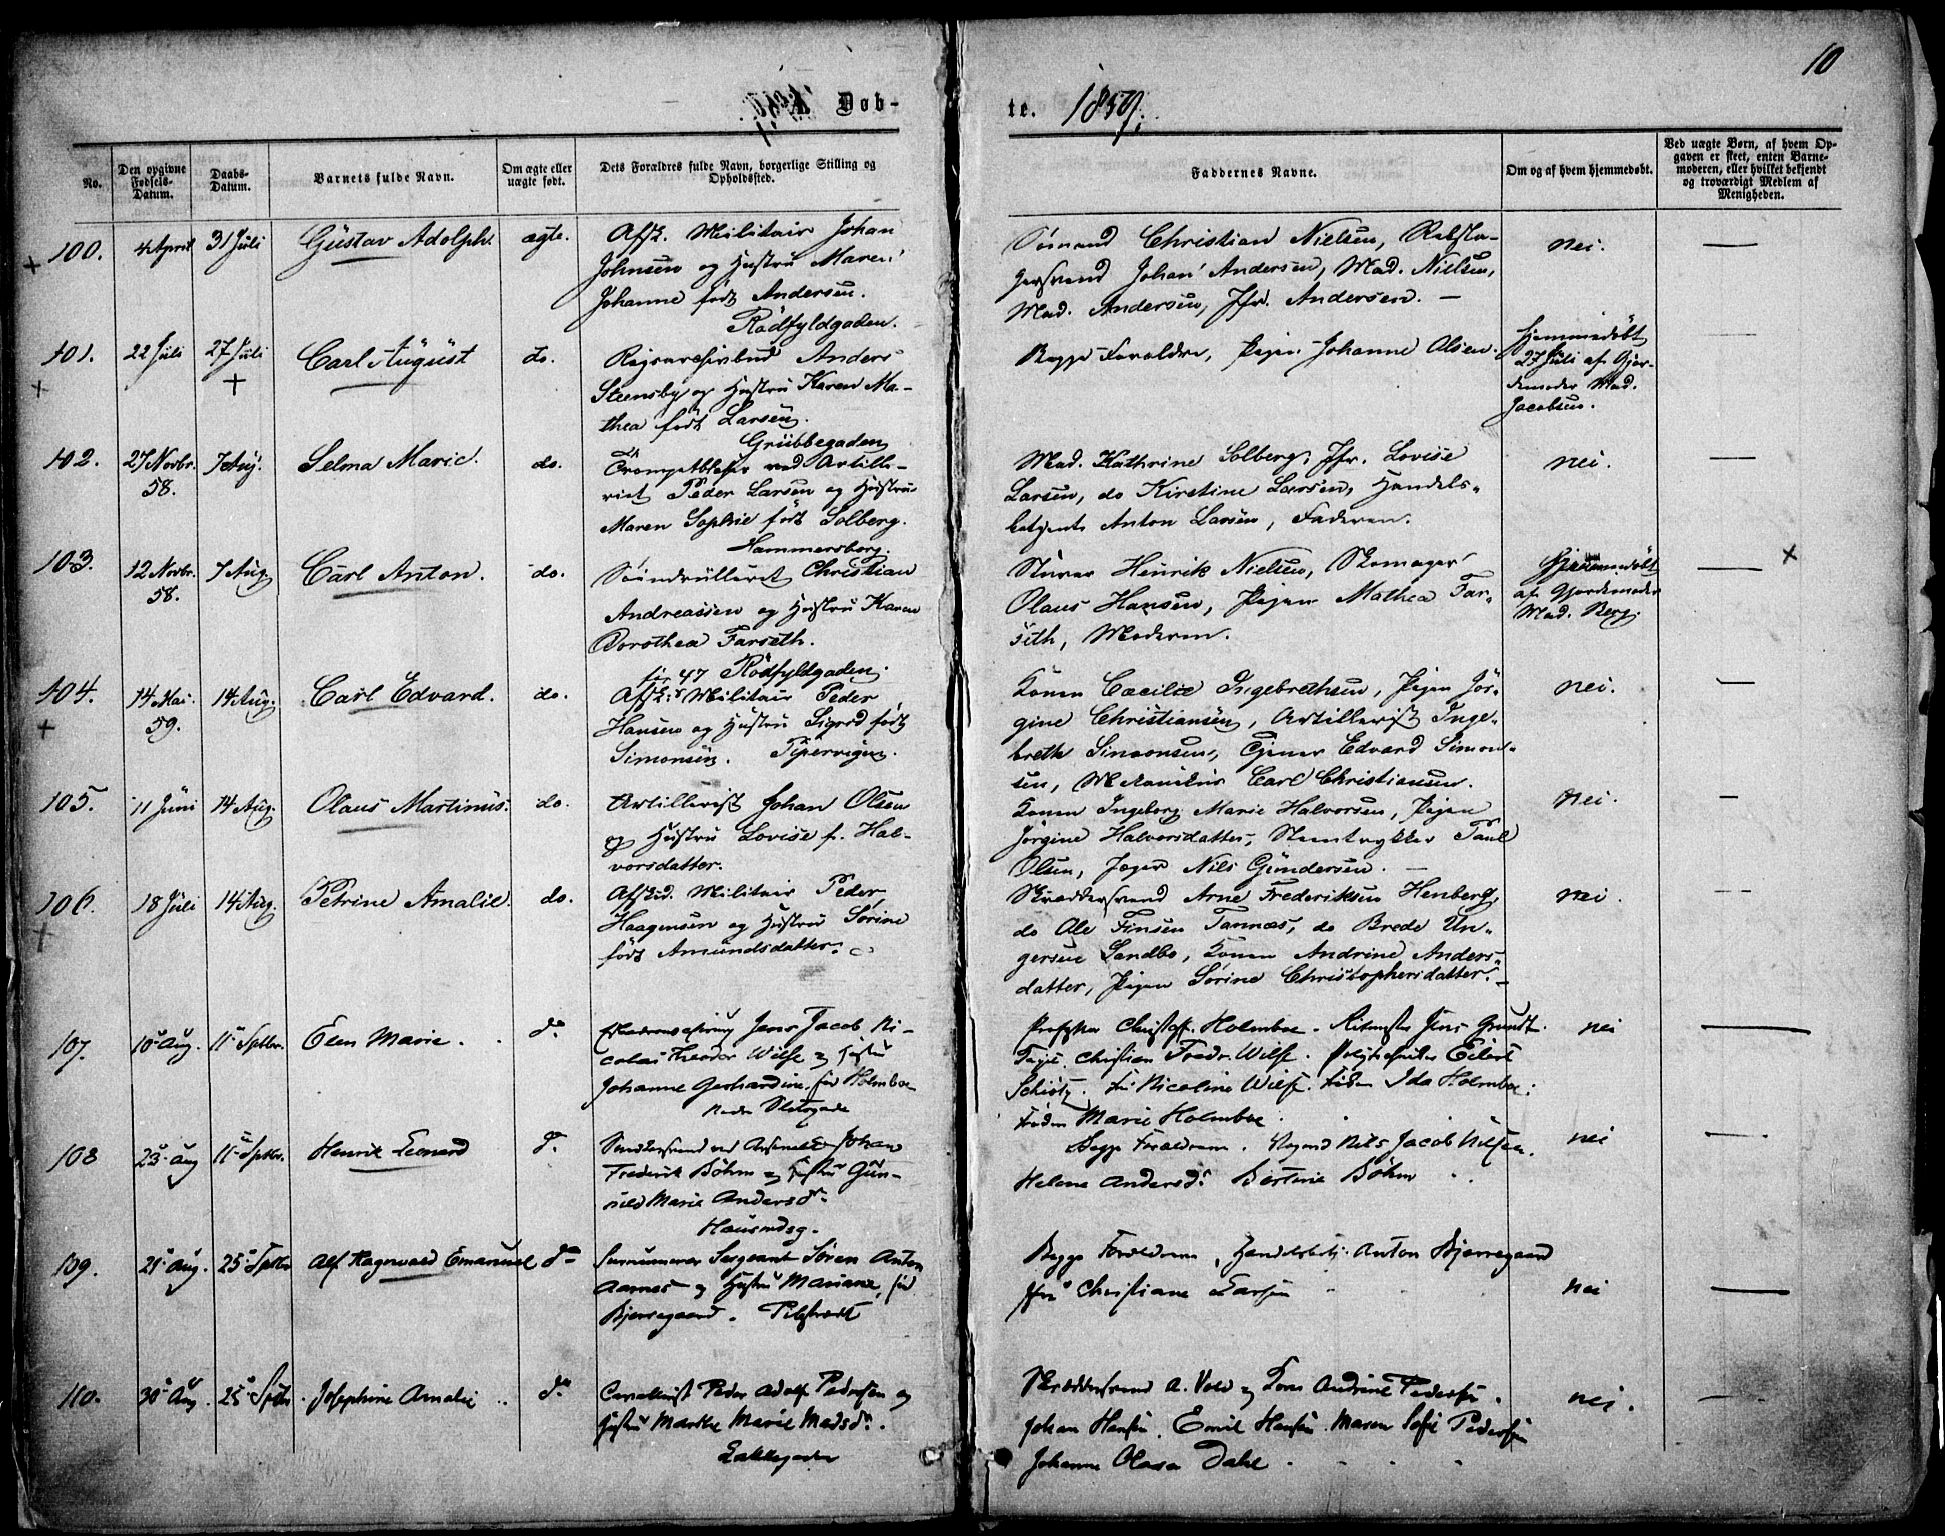 10
Døb-
te. 1859.
No.
Den opgivne Fødsels-Datum.
Daabs-Datum.
Barnets fulde Navn.
Om ægte eller uægte født.
Dets Forældres fulde Navn, borgerlige Stilling og Opholdssted.
Faddernes Navne.
Om og af hvem hjemmedøbt.
Ved uægte Børn, af hvem Opgaven er skeet, enten Barnemoderen, eller hvilket bekjendt og troværdigt Medlem af Menigheden.
100. 4 April 31 Juli Gustav Adolph. ægte.
Afsk. Militair Johan
Johnsen og Hustru Maren
Johanne født Andersen.
Rødfyldgaden.
Sømand Christian Nielsen, Rebsla-
gersvend Johan Andersen, Mad. Nielsen,
Mad. Andersen, Jfr. Andersen. —
nei. —
101. 22 Juli 27 Juli Carl August do.
Anders
Steensby og Hustru Karen Ma-
thea født Larsen.
Grübbegaden
Begge Forældre, Pigen Johanne Olsen.
Hjemmedøbt
27 Juli af Gjor-
demoder Mad.
Jacobsen.
102. 27 Novbr. 58. 7 Aug. Selma Marie. do.
Trompetblæser ved Artille-
riet Peder Larsen og Hustru
Maren Sophie født Solberg.
Hammersborg.
Mad. Kathrine Solberg, Jfr. Lovise
Larsen, do Kirstine Larsen, Handels-
betjent Anton Larsen, Faderen.
nei. —
103. 12 Novbr. 58. 7 Aug. Carl Anton. do.
Søindrulleret Christian
Andreassen og Hustru Karen
Dorothea Farseth.
47 Rødfyldgaden.
Sturer Henrik Nielsen, Skomager
Olaus Hansen, Pigen Mathea Far-
seth, Moderen.
Hjemmedøbt
af Gjordemoder
Mad. Berg.
— ×
104. 14 Mai 59. 14 Aug. Carl Edvard. do.
Afsk. Militair Peder
Hansen og Hustru Sigrid født
Simonsen. Pipervigen.
Konen Cæcilie Ingebrethsen, Pigen Jør-
gine Christiansen, Artillerist Inge-
breth Simonsen, Tjener Edvard Simon-
sen, Mekanikus Carl Christiansen.
nei. —
105. 11 Juni 14 Aug. Olaus Martinus. do.
Artillerist Johan Olsen
og Hustru Lovise f. Hal-
vorsdatter.
Konen Ingeborg Marie Halvorsen, Pigen
Jørgine Halvorsdatter, Stentrykker Paul
Olsen, Jæger Nils Gundersen. —
nei. —
106. 18 Juli 14 Aug. Petrine Amalie. do.
Afskd. Militair Peder
Haagensen og Hustru Sørine
født Amundsdatter.
Skræddersvend Arne Frederiksen Henberg,
do Ole Finsen Tannæs, do Brede Un-
gersen Sandbo, Konen Andrine Anders-
datter, Pigen Sørine Christophersdatter.
nei. —
107. 10 Aug. 11 Septbr. Elen Marie. do
Jens Jacob Ni-
colai Theodor Wilse og Hustru
Johanne Gerhardine født Holmboe
Nedre Slotsgade
Professor Christoff. Holmboe. Ritmester Jens Grundt.
Christian Fredr. Wilse. Eilert
Schiøtz. Fru Nicoline Wilse. Frøken Ida Holmboe.
Frøken Marie Holmboe.
nei —
108 23 Aug 11 Septbr. Henrik Leonard do.
Johan
Frederik Bøhm og Hustru Gun-
nild Marie Andersdr.
Hausmdsg.
Begge Forældrene. Nils Jacob Nilsen.
Helene Andersdr. Bertine Bøhm
nei —
109. 21 Aug. 25 Septbr Alf Ragnvald Emanuel do
Surnumerær Sergeant Søren Anton
Aarnes og Hustru Mariane, født
Bjerregaard. Pilestrædt
Begge Forældrene, Handelsbetj. Anton Bjerregaard
Jfr. Christiane Larsen
nei —
110. 30 Aug 25 Septbr Josephine Amalie do
Cavallerist Peder Adolf Pedersen og
Hustru Marthe Marie Madsdr.
Lakkegaden
Skræddersvend A. Vold og Kone Andrine Pedersen.
Johan Hansen. Emil Hansen. Maren Sofie Pedersen
Johanne Olava Dahl
nei. —